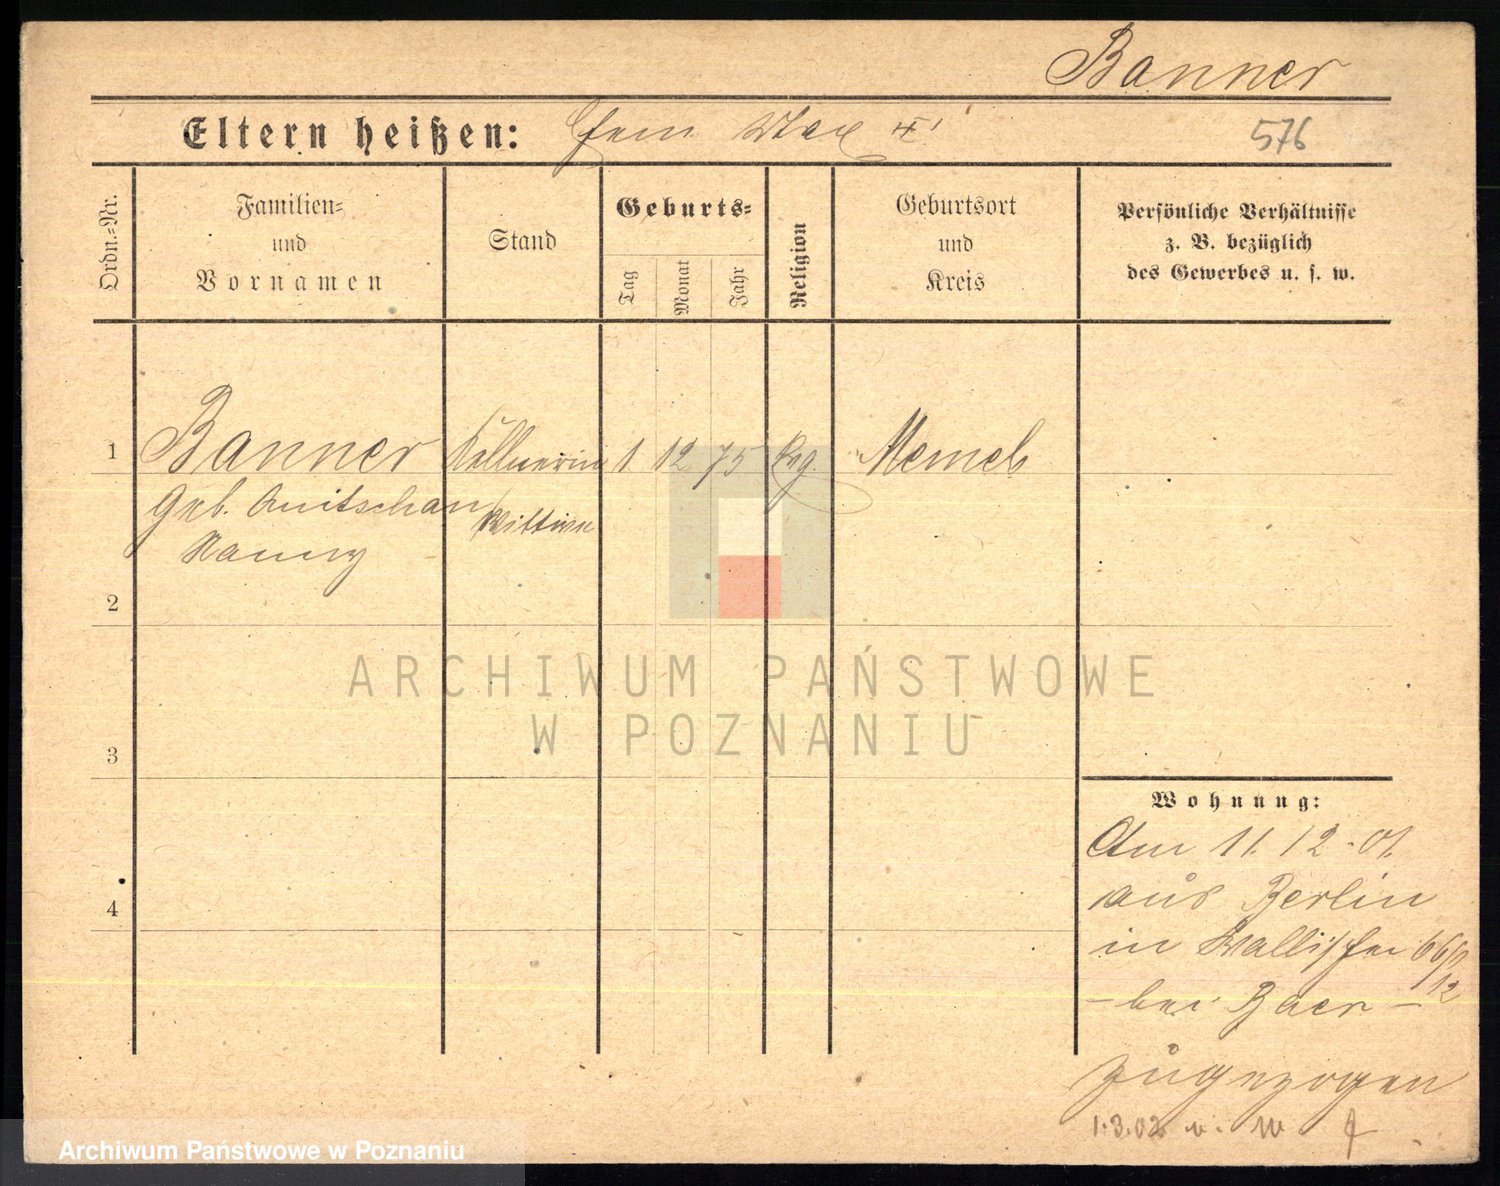 Banner
Eltern heißen:
576
Ordn.=Nr.
Familien=
und
Vornamen
Stand
Geburts=
Tag
Monat
Jahr
Religion
Geburtsort
und
Kreis
Persönliche Verhältnisse
z. B. bezüglich
des Gewerbes u. s. w.
1 Banner Kellnerin 1 12 75 Memel
geb.
Wittwe
Nanny
2
ARCHIWUM PAŃSTWOWE
W POZNANIU
3
Wohnung:
Am 11.12.01.
4
aus Berlin
in Wallischei
– bei Baer –
zugezogen
1.3.02
Archiwum Państwowe w Poznaniu